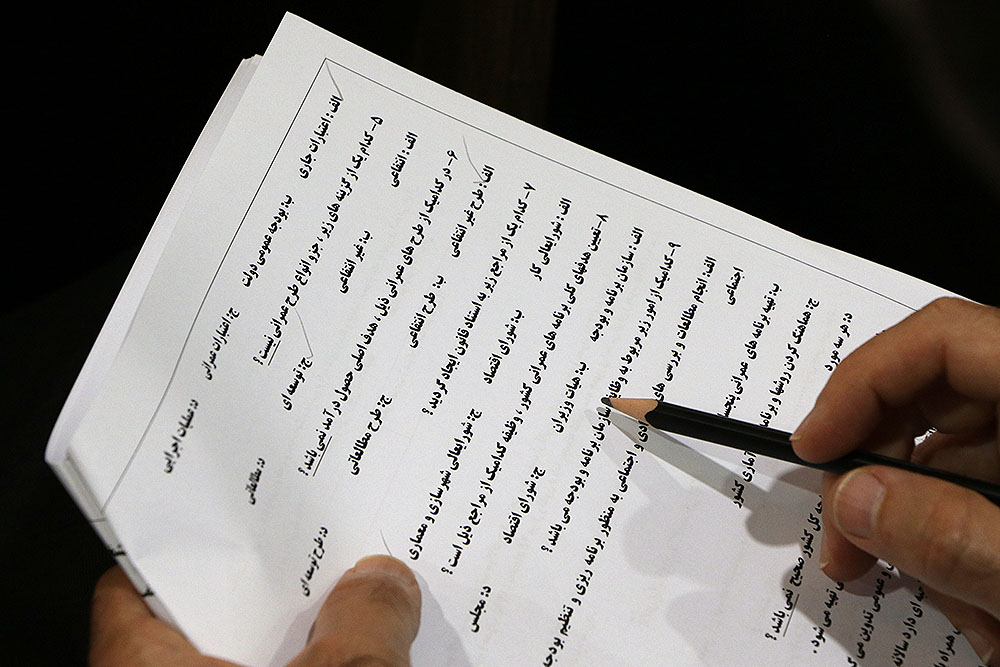 الف: اعتبارات جاری ب: بودجه عمومی دولت ج: اعتبارات عمرانی د: عملیات اجرایی
۵- کدام یک از گزینه های زیر ، جزو انواع طرح عمرانی نیست ؟
الف : انتفاعی ب: غیر انتفاعی ج: توسعه ای د: مطالعاتی
۶- در کدامیک از طرح های عمرانی ذیل ، هدف اصلی حصول درآمد نمی باشد؟
الف: طرح غیر انتفاعی ب: طرح انتفاعی ج: طرح مطالعاتی د: طرح توسعه ای
۷- کدام یک از مراجع زیر به استناد قانون ایجاد گردید؟
الف : شورایعالی کار ب: شورای اقتصاد ج: شورایعالی شهرسازی و معماری د: مجلس
۸- تعیین هدفهای کلی برنامه های عمرانی کشور ، وظیفه کدامیک از مراجع ذیل است ؟
الف : سازمان برنامه و بودجه ب: هیات وزیران ج: شورای اقتصاد
۹- کدامیک از امور زیر مربوط به سازمان برنامه و بودجه می باشد ؟
الف: انجام مطالعات و بررسی های و اجتماعی به منظور برنامه ریزی و تنظیم بودجه
اجتماعی
ب: تهیه برنامه های عمرانی
ج: هماهنگ کردن روشها و برنامه آماری کشور
د: هر سه مورد
کل کشور صحیح نمی باشد ؟
تهیه می شود .
و عمومی تدوین می
ای دارد سالانه
همراه